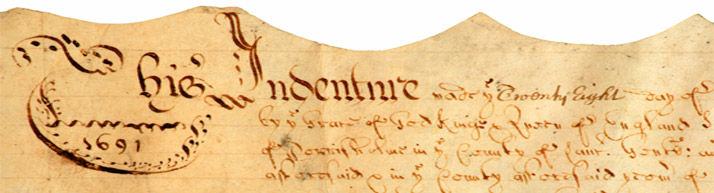 This Indenture made yᵉ Twenty Eight day of
1691
by yᵉ Grace of God King & Queen of England
of in yᵉ County of
aforesaid & in yᵉ County aforesaid of